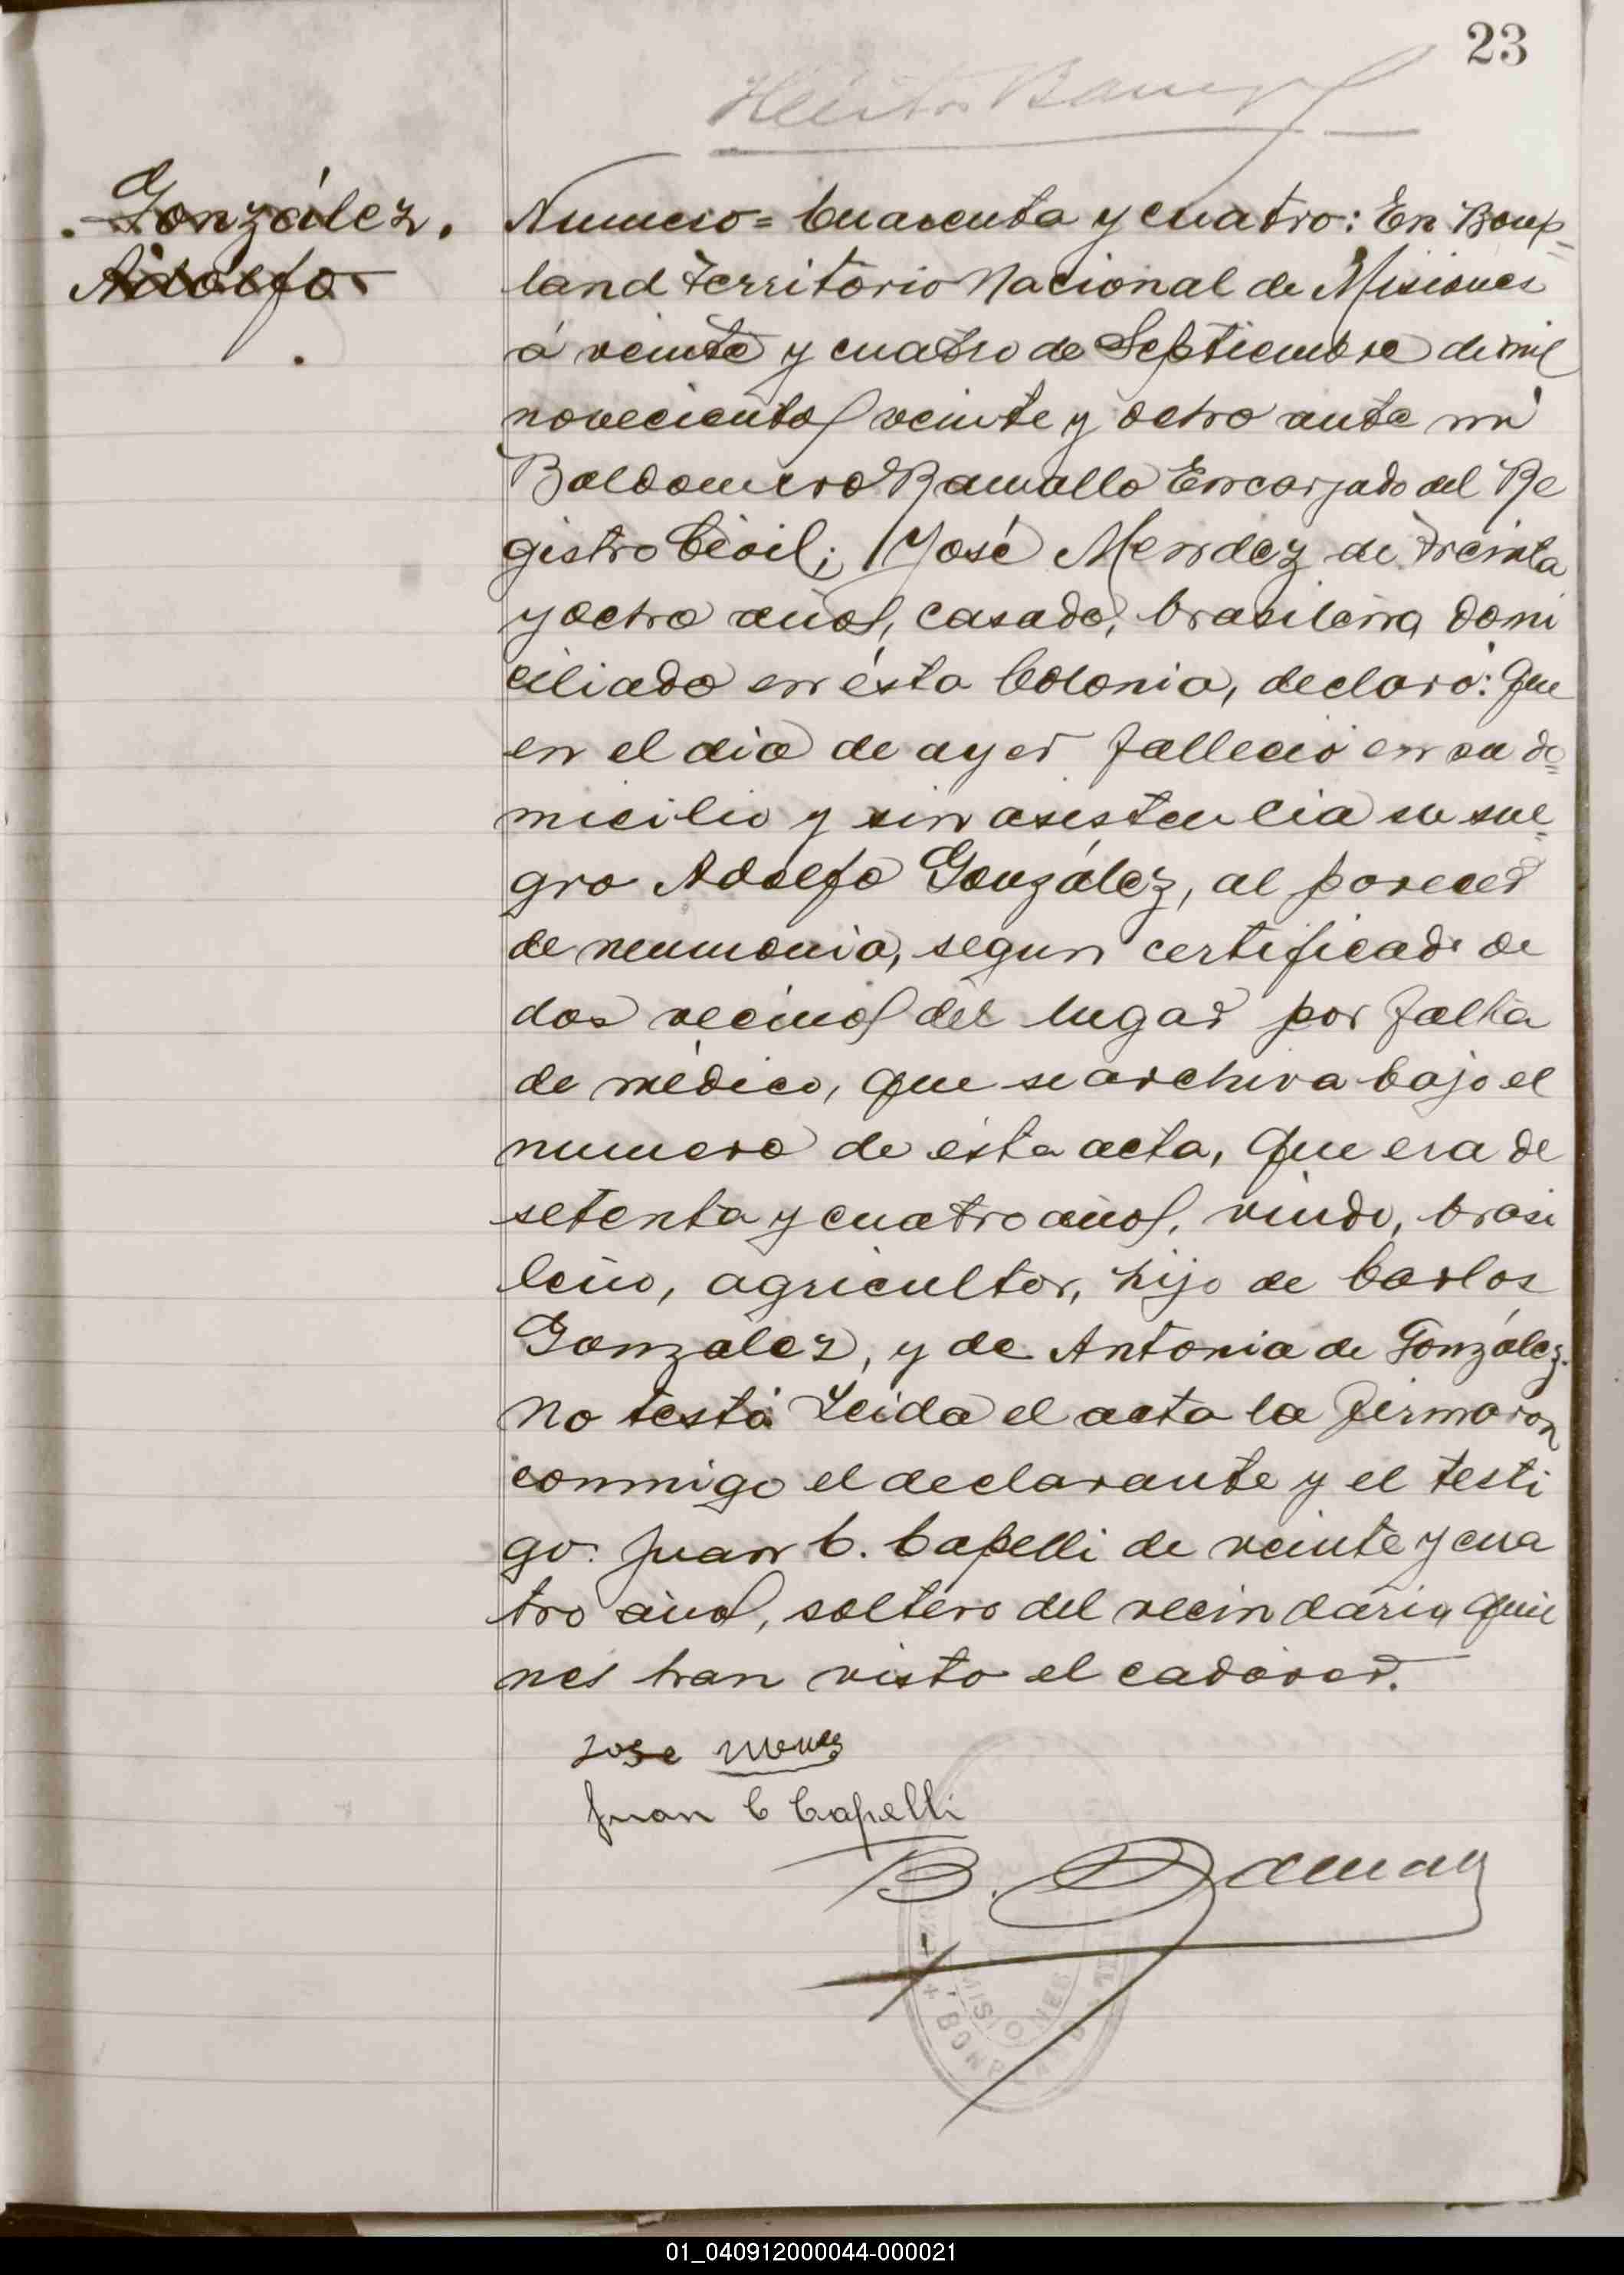 23
González.
Adolfo
Numero = Cuarenta y cuatro: En Bonp=
land Territorio Nacional de Misiones
á veinte y cuatro de Septiembre de mil
novecientos veinte y ocho ante mi
Baldomero Ramallo Encargado del Re
gistro Civil; José Mendez de treinta
y ocho años, casado, brasilero, domi
ciliado en ésta Colonia, declaró: Que
en el dia de ayer falleció en su do=
micilio y sin asistencia su sue=
gro Adolfo González, al parecer
de neumonia, segun certificado de
dos vecinos del lugar por falta
de médico, que se archiva bajo el
numero de ésta acta, que era de
setenta y cuatro años, viudo, brasi
leño, agricultor, hijo de Carlos
González, y de Antonia de González.
No testó. Leida el acta la firmaron
conmigo el declarante y el testi
go: Juan C. Capelli de veinte y cua
tro años, soltero del vecindario, quie
nes han visto el cadáver.
Jose
Juan C Capelli
B.
MISIONES
BONPLAND
01_040912000044-000021